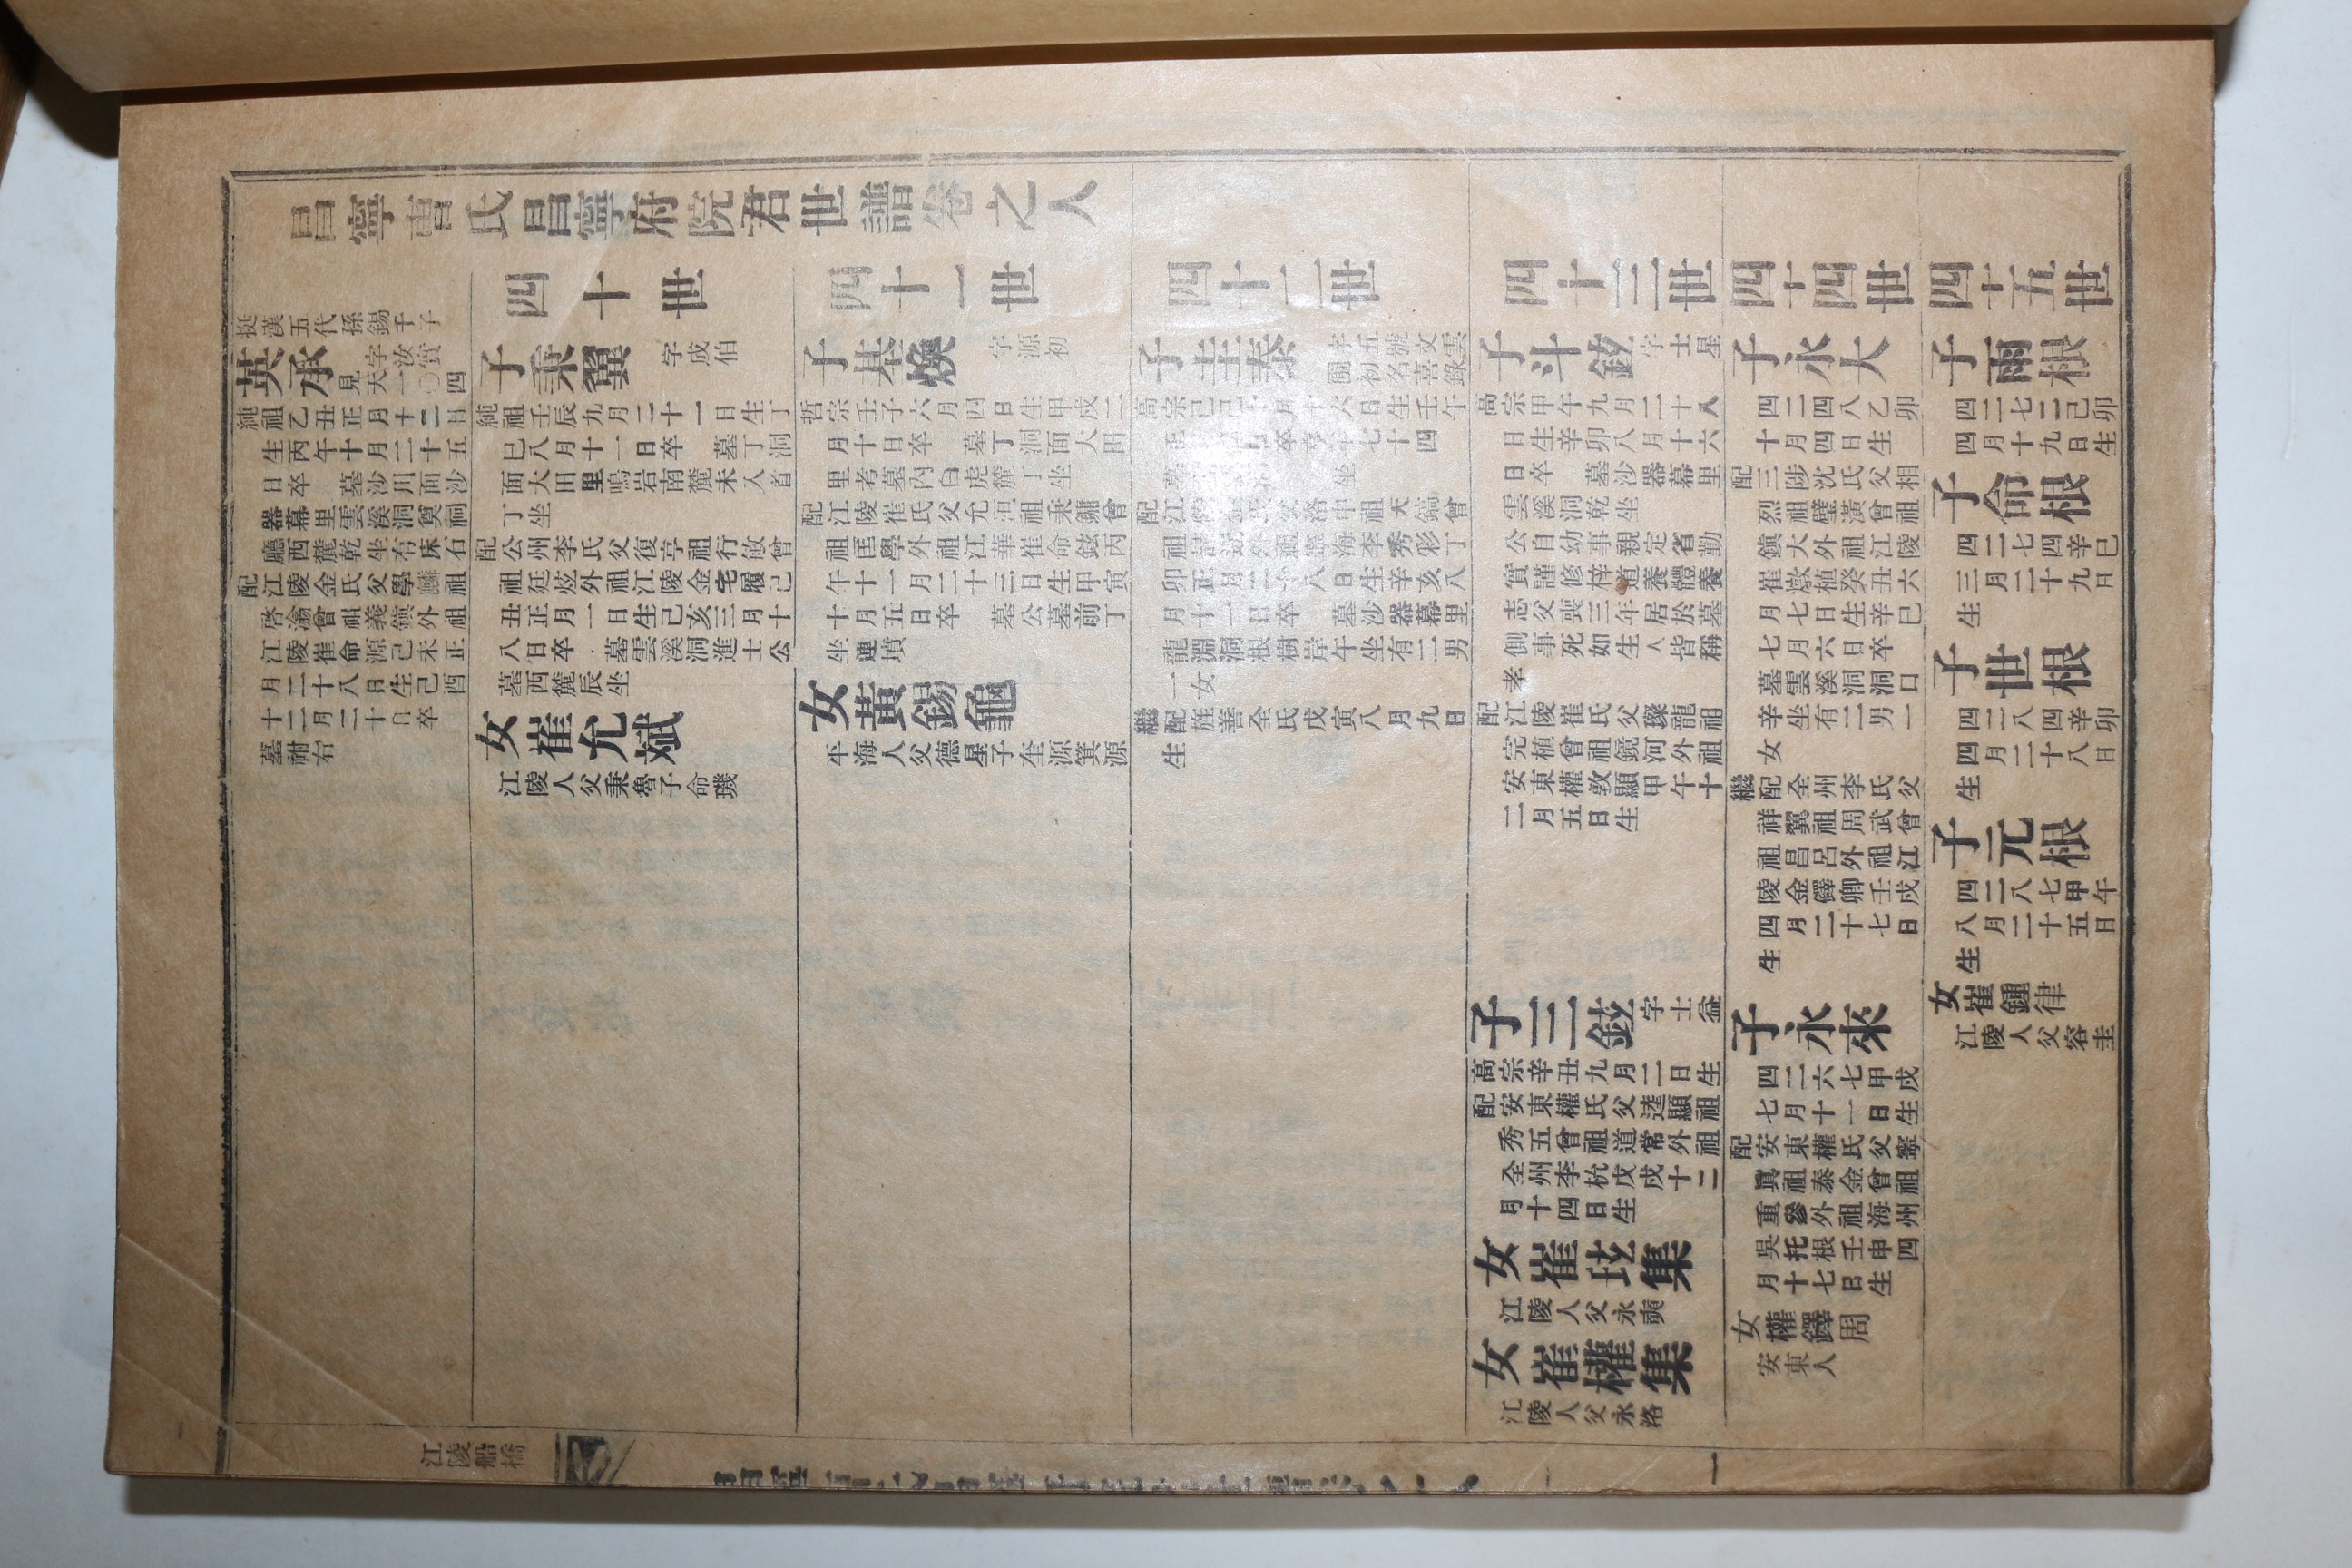 昌寧曺氏昌寧府院君世譜卷之人
挺漢五代孫錫千子
英承
字汝實
見天一〇四
純祖乙丑正月十二日
生丙午十月二十五
日卒 墓沙川面沙
器幕里雲溪洞奠祠
廳西麓乾坐有床石
配江陵金氏父學麟祖
啓瀹曾祖義鎭外祖
江陵崔命源己未正
月二十八日生己酉
十二月二十日卒
墓祔右
四十世
子秉翼
字成伯
純祖壬辰九月二十一日生丁
巳八月十一日卒 墓丁洞
面大田里鳴岩南麓未入首
丁坐
配公州李氏父復亨祖行敏曾
祖廷炫外祖江陵金宅履己
丑正月一日生己亥三月十
八日卒 墓雲溪洞進士公
墓西麓辰坐
女崔允斌
江陵人父秉魯子命璣
四十一世
子基煥
字源初
哲宗壬子六月四日生甲戌二
月十日卒 墓丁洞面大田
里考墓內白虎麓丁坐
配江陵崔氏父允洹祖秉鏞曾
祖匡學外祖江華崔命鉉丙
午十一月二十三日生甲寅
十月五日卒 墓公墓前丁
坐連墳
女黃錫龜
平海人父德星子奎源箕源
四十二世
子圭泰
字五號文雲
圃初名喜錄
高宗己巳十月十六日生壬午
正月 日卒享年七十四
墓 坐
配江陵金氏父洛中祖天鎬曾
祖 外祖寧海李秀彩丁
卯正月二十八日生辛亥八
月十一日卒 墓沙器幕里
龍淵洞根樹岸午坐有二男
一女
繼配旌善全氏戊寅八月九日
生
四十三世
子斗鉉
字士星
高宗甲午九月二十八
日生辛卯八月十六
日卒 墓沙器幕里
雲溪洞乾坐
公自幼事親定省勤
實謹修梓道養體養
志父喪三年居於墓
側事死如生人皆稱
孝
配江陵崔氏父璨龍祖
完植曾祖鏡河外祖
安東權敦顯甲午十
二月五日生
子三鉉
字士益
高宗辛丑九月二日生
配安東權氏父逵顯祖
秀五曾祖道常外祖
全州李杭戊戌十二
月十四日生
女崔玹集
江陵人父永奭
女崔權集
江陵人父永洛
四十四世
子永大
四二四八乙卯
十月四日生
配三陟沈氏父相
烈祖璧潢曾祖
鎭大外祖江陵
崔燉植癸丑六
月七日生辛巳
七月六日卒
墓雲溪洞洞口
辛坐有二男一
女
繼配全州李氏父
祥翼祖周武曾
祖昌呂外祖江
陵金鐸卿壬戌
四月二十七日
生
子永來
四二六七甲戌
七月十一日生
配安東權氏父寧
眞祖泰金曾祖
重參外祖海州
吳托根壬申四
月十七日生
女權鐸周
安東人
四十五世
子雨根
四二七二己卯
四月十九日生
子命根
四二七四辛巳
三月二十九日
生
子世根
四二八四辛卯
四月二十八日
生
子元根
四二八七甲午
八月二十五日
生
女崔鍾律
江陵人父容圭
江陵船橋
一